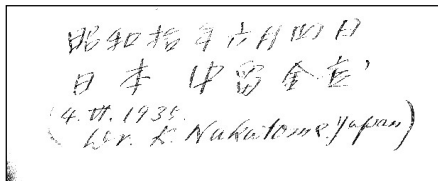 昭和拾年六月四日
日本 中留金
(4. VI. 1935.
Dr. K. Nakatome, Japan)